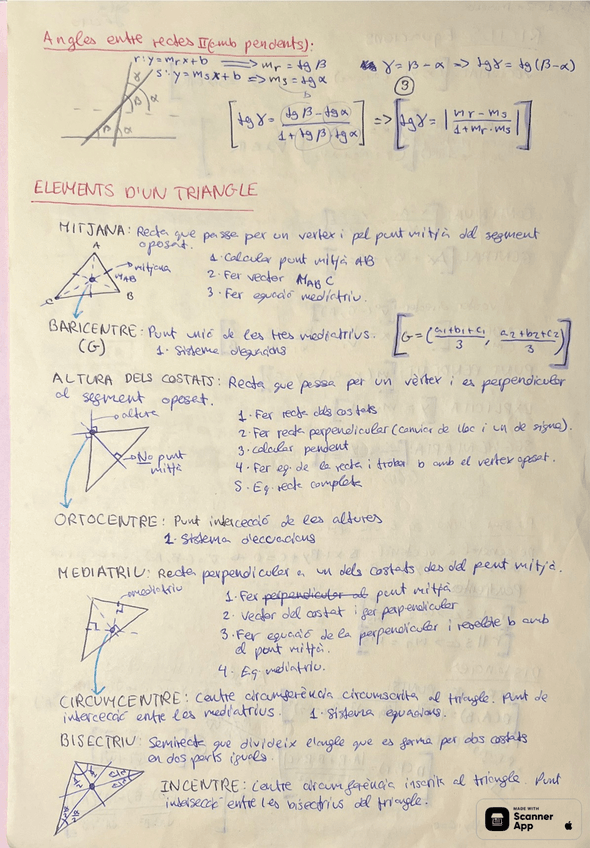 Angles entre rectes II (amb pendents):
r: y = mr x + b ⟹ mr = tg β
s: y = ms x + b ⟹ ms = tg α
γ = β - α ⟹ tg γ = tg (β - α)
γ
β α
β α
[tg γ = (tg β - tg α) / (1 + tg β · tg α)] ⟹ [tg γ = |(mr - ms) / (1 + mr · ms)|]
ELEMENTS D'UN TRIANGLE
MITJANA: Recta que passa per un vertex i pel punt mitjà del segment
oposat.
A
mitjana
MAB
C B
1. Calcular punt mitjà AB
2. Fer vector MAB C
3. Fer equació mediatriu.
BARICENTRE: Punt unió de les tres mediatrius.
(G) 1. Sistema d'equacions
[G = ((a1+b1+c1)/3, (a2+b2+c2)/3)]
ALTURA DELS COSTATS: Recta que passa per un vèrtex i es perpendicular
al segment oposat.
altura
No punt
mitjà
1. Fer recta dels costats
2. Fer recta perpendicular (canviar de lloc i un de signe).
3. Calcular pendent
4. Fer eq. de la recta i trobar b amb el vertex oposat.
5. Eq. recta completa
ORTOCENTRE: Punt intercecció de les altures
1. Sistema d'eccuacions
MEDIATRIU: Recta perpendicular a un dels costats des del punt mitjà.
mediatriu
1. Fer perpendicular al punt mitjà
2. Vector del costat i fer perpendicular
3. Fer equació de la perpendicular i resoldre b amb
el punt mitjà.
4. Eq. mediatriu.
CIRCUMCENTRE: Centre circumferència circumscrita al triangle. Punt de
intercecció entre les mediatrius. 1. Sistema equacions.
BISECTRIU: Semirecta que divideix l'angle que es forma per dos costats
en dos parts iguals.
INCENTRE: Centre circumferència inscrita al triangle. Punt
intersecció entre les bisectrius del triangle.
MADE WITH
Scanner
App